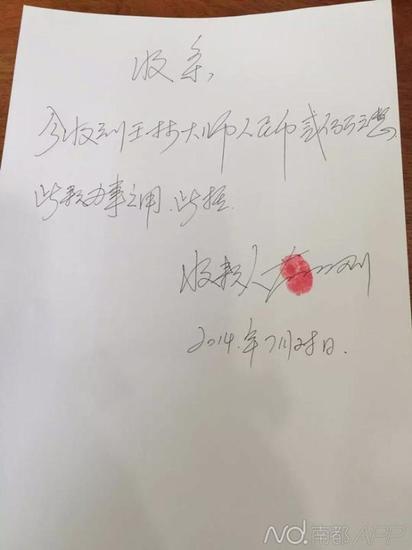 收条
今收到王林大师人民币贰佰万整
此款办事之用.此据.
收款人
2014.年7月25日.
南都APP